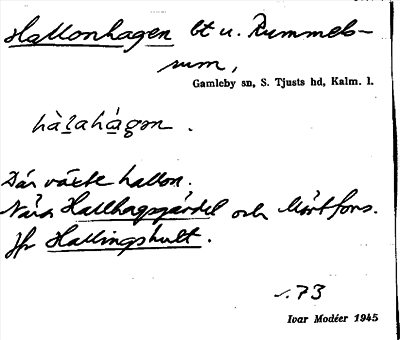 Hallonhagen bt u. Rummels-
rum,
Gamleby sn, S. Tjusts hd, Kalm. l.
hàlahágon.
Där växte hallon.
Nära Hallhagsgärdel och Mörtfors.
Jfr Hallingshult.
s. 73
Ivar Modéer 1945